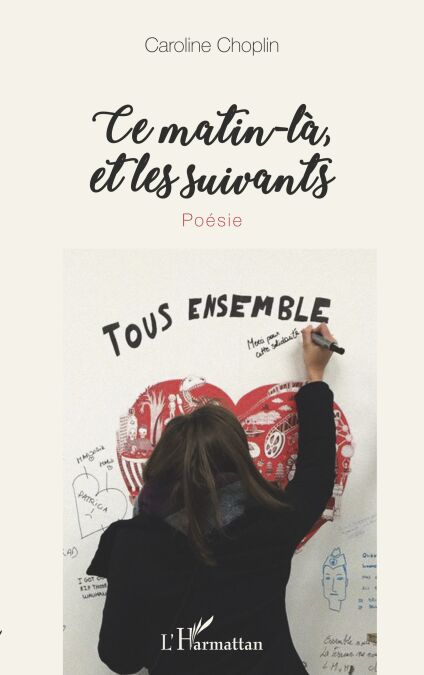 Caroline Choplin
Ce matin-là,
et les suivants
Poésie
TOUS ENSEMBLE
Merci pour
cette solidarité
MARJORIE
MARIO
PATRICIA
I GOT
L'Harmattan